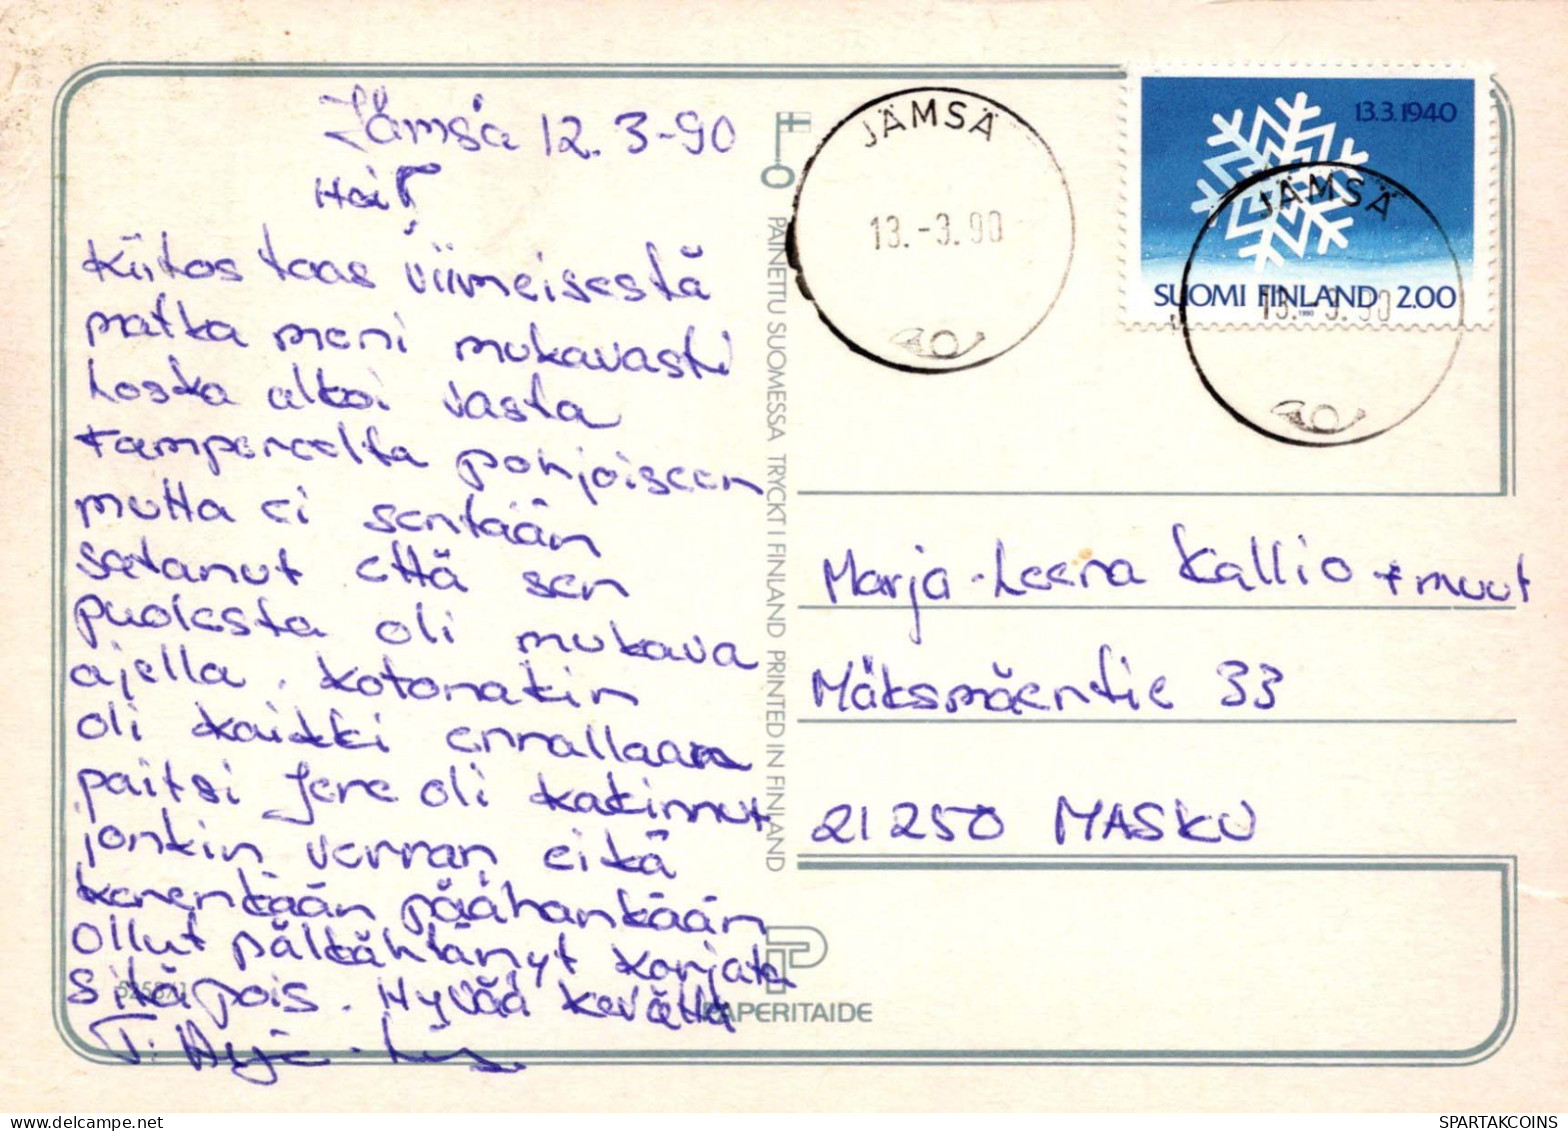 Jämsä 12.3-90
Hei!
Kiitos taas viimeisestä
matka meni mukavasti
Loska alkoi vasta
Tampereelta pohjoiseen
mutta ei sentään
satanut että sen
puolesta oli mukava
ajella. Kotonakin
oli kaikki ennallaan
paitsi Jere oli kakinnut
jonkin verran eikä
kenenkään päähänkään
ollut pälkähtänyt korjata
sitä pois. Hyvää kevättä
T:
PAINETTU SUOMESSA TRYCKT I FINLAND PRINTED IN FINLAND
PAPERITAIDE
JÄMSÄ
13.-3.90
13.3.1940
SUOMI FINLAND 2.00
1990
JÄMSÄ
13.-3.90
Marja-Leena Kallio + muut
Mäksmäentie 33
21250 MASKU
SPARTAKCOINS